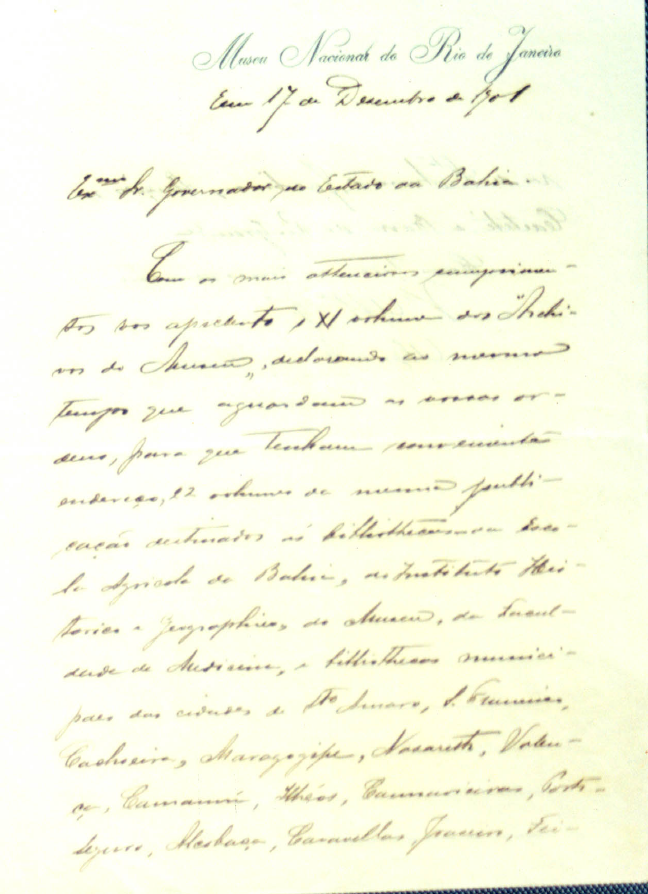 Museu Nacional do Rio de Janeiro
Em 17 de Dezembro de 1901
Exmo Sr. Governador do Estado da Bahia
Com os mais attenciosos cumprimen-
tos vos apresento o XI volume dos "Archi-
vos do Museu", declarando ao mesmo
tempo que aguardam as vossas or-
dens, para que tenham conveniente
endereço, 22 volumes da mesma publi-
cação destinados ás bibliothecas da Esco-
la Agricola da Bahia, do Instituto His-
torico e Geographico, do Museu, da Facul-
dade de Medicina, e bibliothecas munici-
paes das cidades de Sto Amaro, S. Francisco,
Cachoeira, Maragogipe, Nazareth, Valen-
ça, Camamú, Ilhéos, Cannavieiras, Porto-
Seguro, Alcobaça, Caravellas, Joaseiro, Fei-